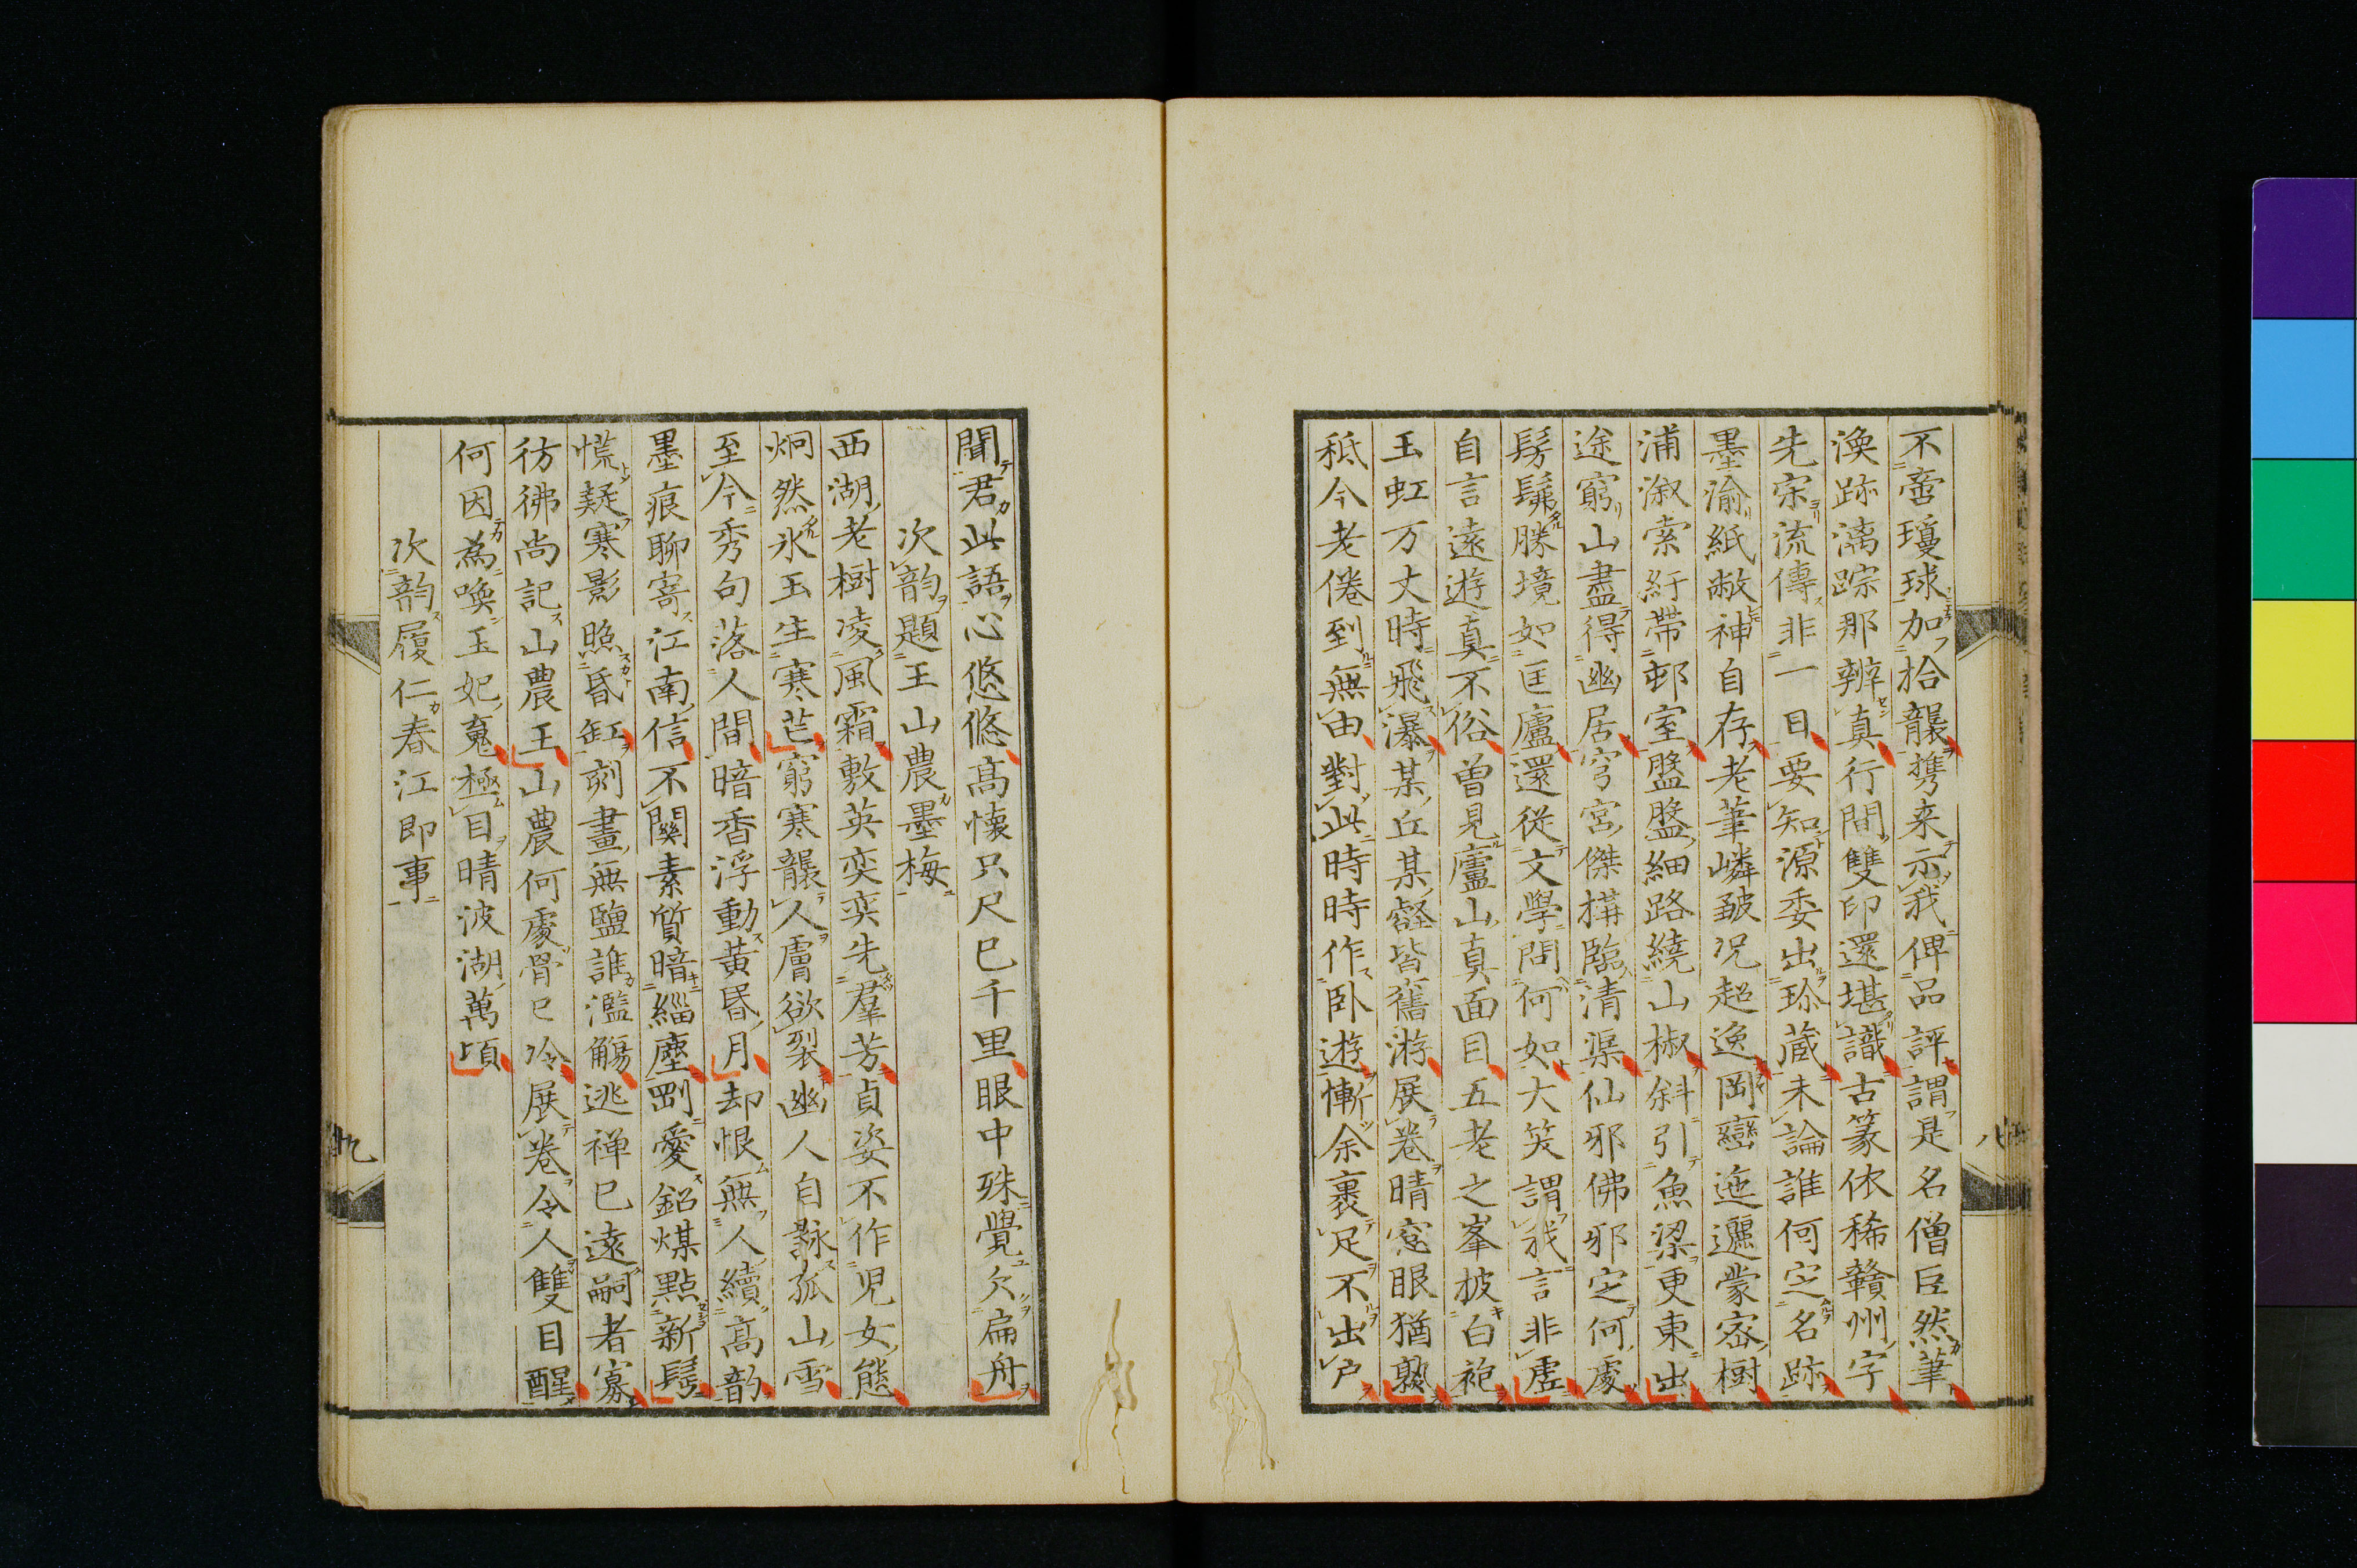 不啻瓊球加拾襲携来示我俾品評謂是名僧巨然筆
渙跡漓踪那辨真行間雙印還堪識古篆依稀贛州字
先宗流傳非一日要知源委出珎蔵未論誰何定名跡
墨渝紙敝神自存老筆嶙皴况超逸岡巒迤邐蒙密樹
浦溆索紆帶邨室盤盤細路繞山椒斜引魚梁更東出
途窮山盡得幽居穹宮傑搆臨清渠仙邪佛邪定何處
髣髴勝境如匡廬還從文學問何如大笑謂我言非虛
自言遠遊真不俗曽見廬山真面目五老之峯披白袍
玉虹万丈時飛瀑某丘某壑皆舊游展卷晴窓眼猶熟
秪今老倦到無由對此時時作卧遊慚余裹足不出戶
八
聞君此語心悠悠高懐只尺已千里眼中殊覺欠扁舟
次韵題王山農墨梅
西湖老樹凌風霜敷英奕奕先羣芳貞姿不作児女態
炯然氷玉生寒芒窮寒襲人膚欲裂幽人自詠孤山雪
至今秀句落人間暗香浮動黃昬月却恨無人續高韵
墨痕聊寄江南信不關素質暗緇塵剛愛鉛煤點新鬟
慌疑寒影照昏缸刻畫無鹽誰濫觴逃禅已遠嗣者寡
彷彿尚記山農王山農何處骨已冷展卷令人雙目醒
何因為喚玉妃䰟極目晴波湖萬頃
次韵履仁春江即事
九